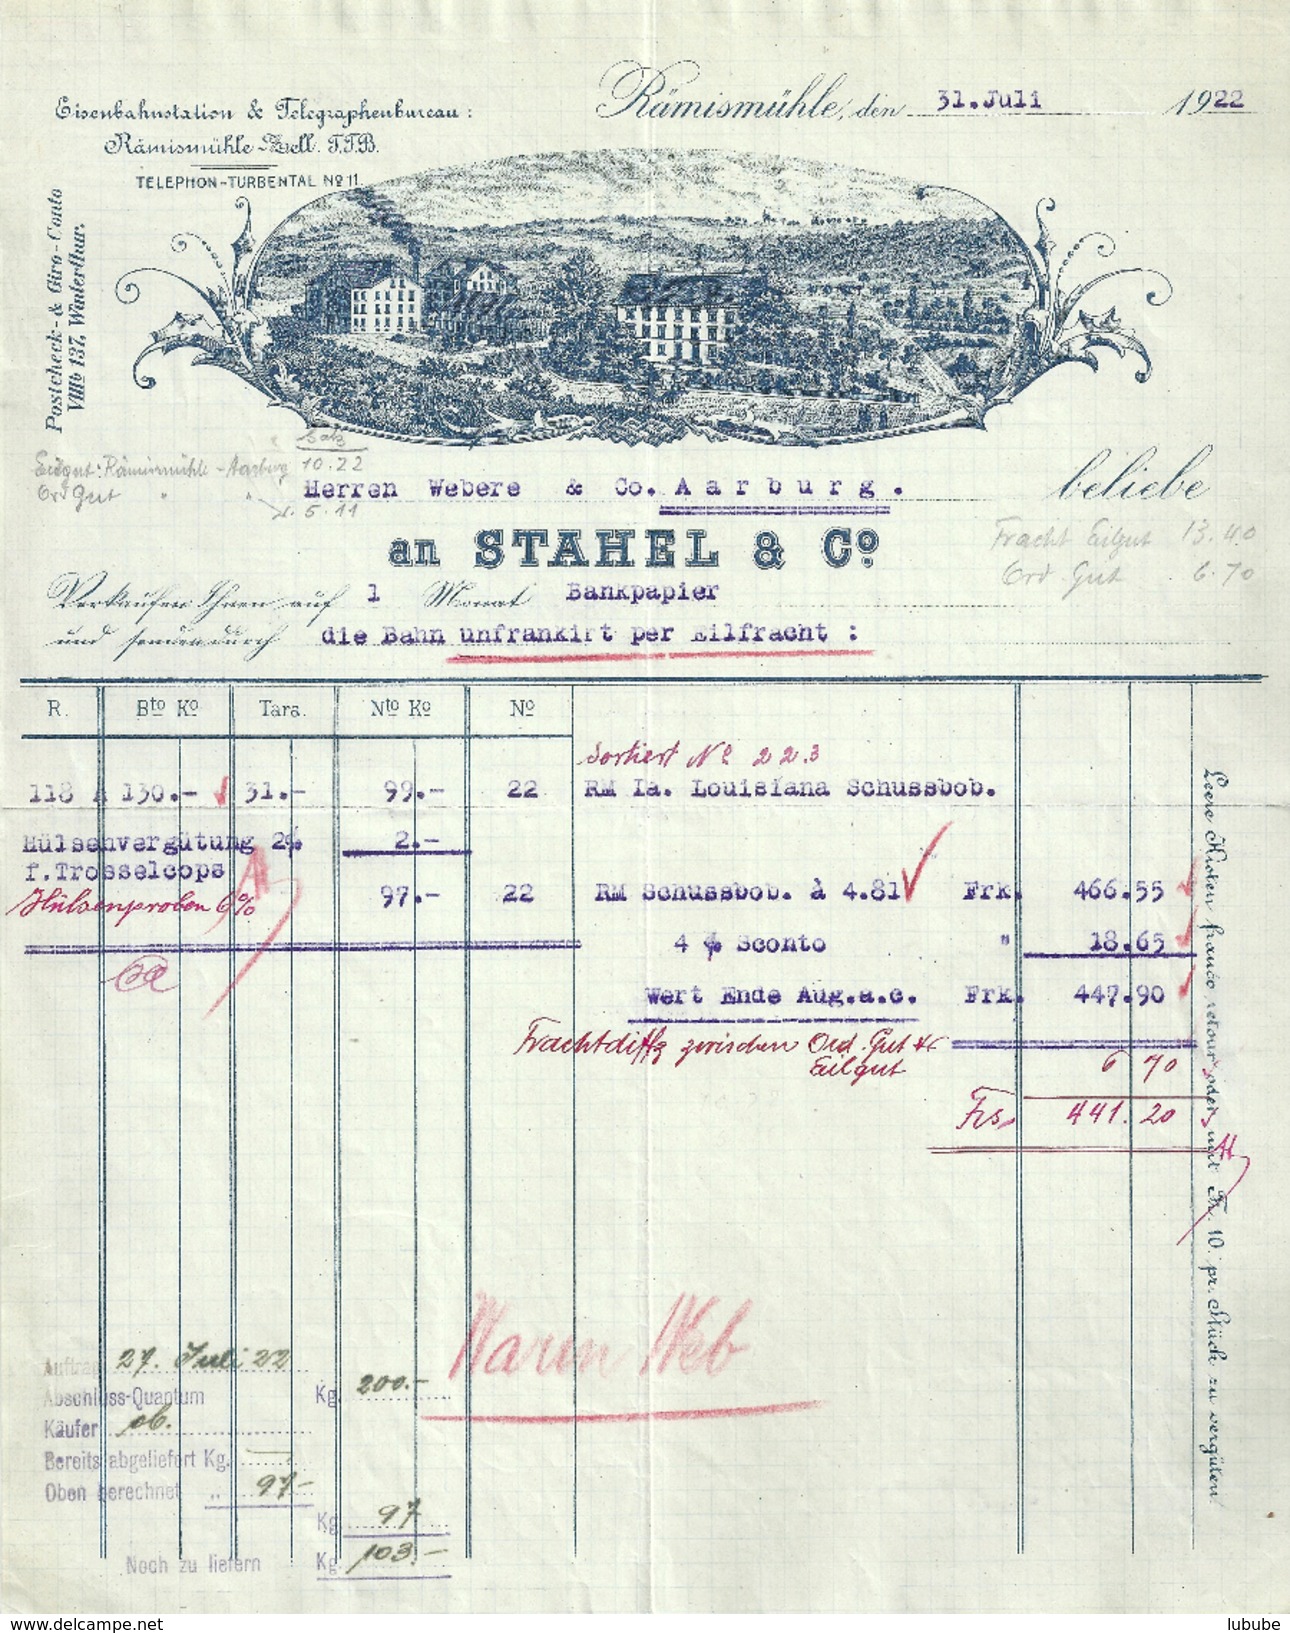 Rämismühle, den 31.Juli 1922
Eisenbahnstation & Telegraphenbureau:
Rämismühle-Zell. T.T.B.
TELEPHON-TURBENTAL No 11
Postcheck- & Giro-Conto
VIIIb 137, Winterthur.
Satz
Eilgut: Rämismühle - Aarburg 10.22
Ord Gut " " 5.11
Herren Webere & Co. Aarburg. beliebe
an STAHEL & Co.
Fracht Eilgut 13.40
Ord. Gut 6.70
Verkaufen Ihnen auf 1 Monat Bankpapier
und senden durch die Bahn unfrankirt per Eilfracht :
R. Bto Ko Tara. Nto Ko No
Sortiert No 223
118 A 130.- 31.- 99.- 22 RM Ia. Louisiana Schussbob.
Hülsenvergütung 2% 2.-
f.Trosselcops
97.- 22 RM Schussbob. à 4.81 Frk. 466.55
Hülsenproben 6%
4 % Sconto " 18.65
Wert Ende Aug.a.c. Frk. 447.90
Frachtdiffz zwischen Ord. Gut &
Eilgut 6 70
Frs. 441.20
Leere Kisten franco retour oder mit Fr. 10. pr. Stück zu vergüten.
Warm Web
Auftrag 27. Juli 22
Abschluss-Quantum Kg. 200.-
Käufer ob.
Bereits abgeliefert Kg. -
Oben gerechnet " 97-
Kg. 97
Noch zu liefern Kg. 103.-
lubube